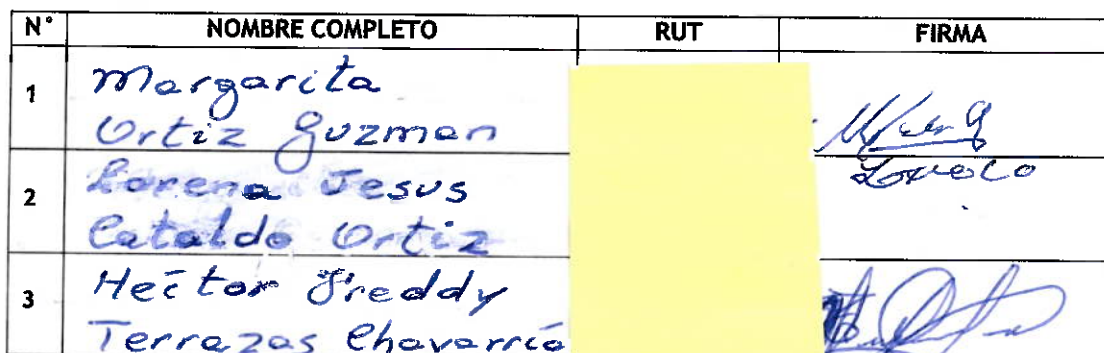 N° NOMBRE COMPLETO RUT FIRMA
1 Margarita
Ortiz Guzman
2 Lorena Jesus
Cataldo Ortiz
3 Hector Freddy
Terrazas Chavarría